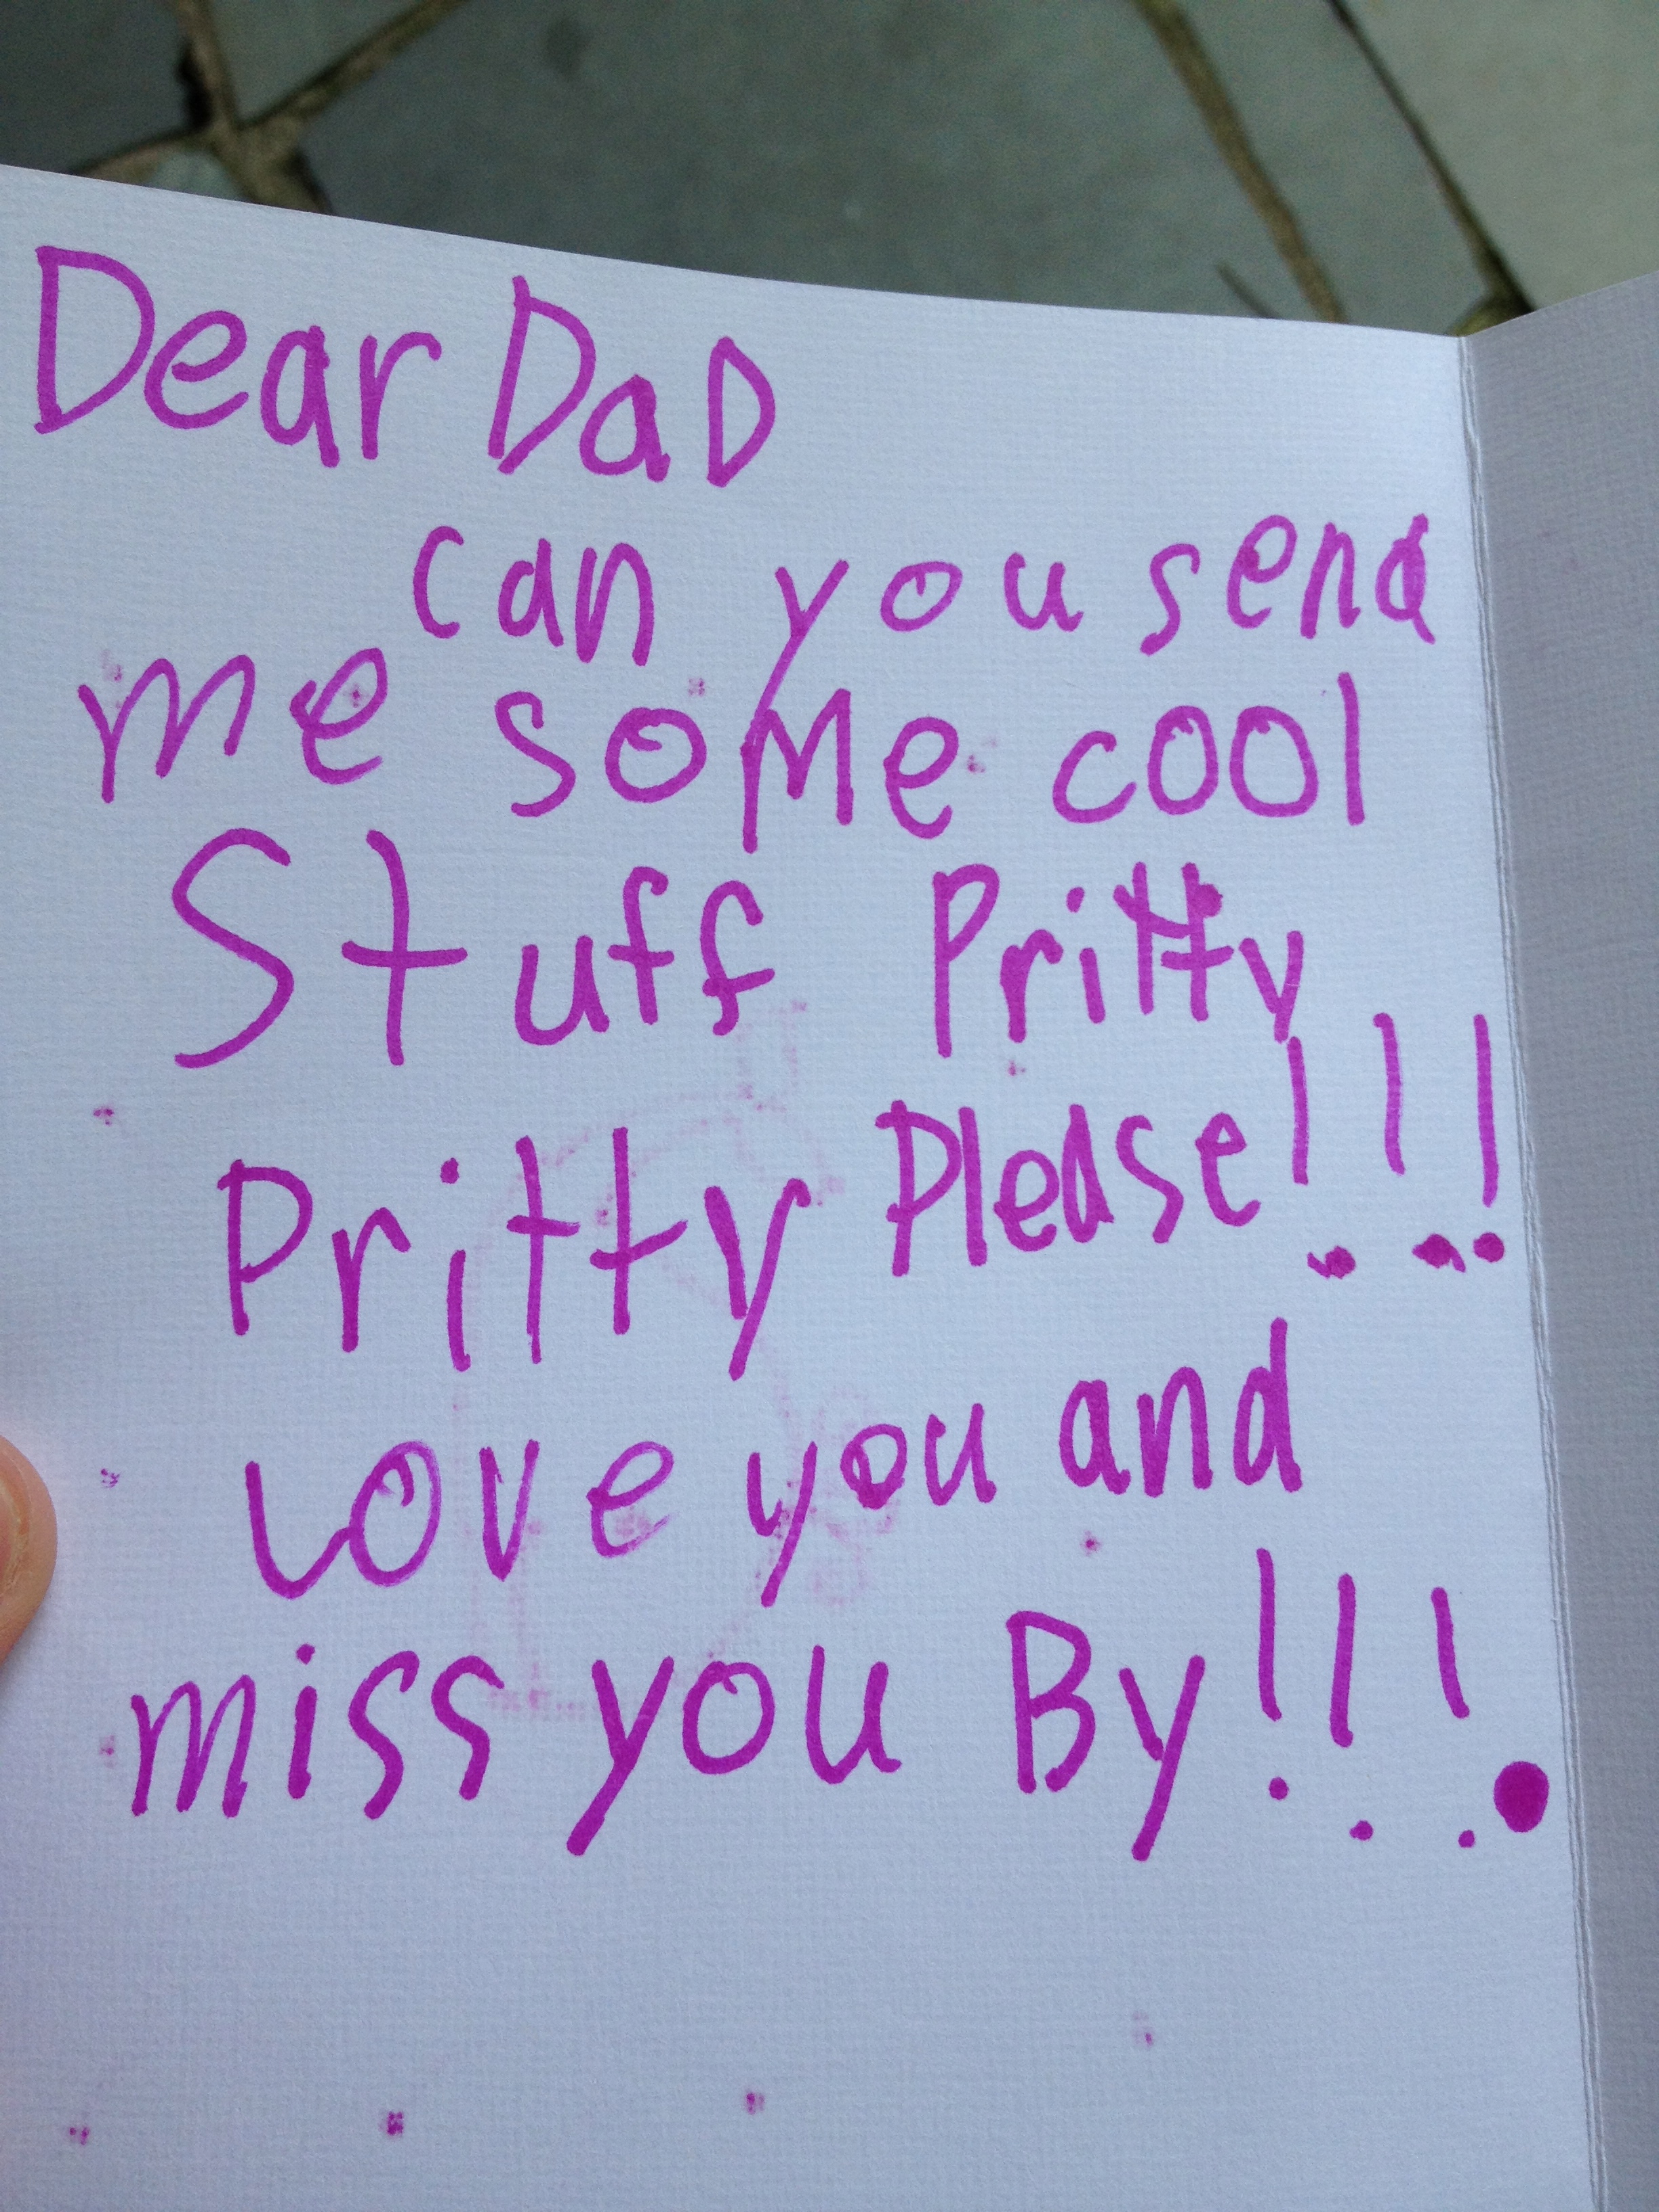 Dear DaD
can you send
me soMe cool
Stuff Pritty
Pritty Please!!!
Love you and
miss you By!!!